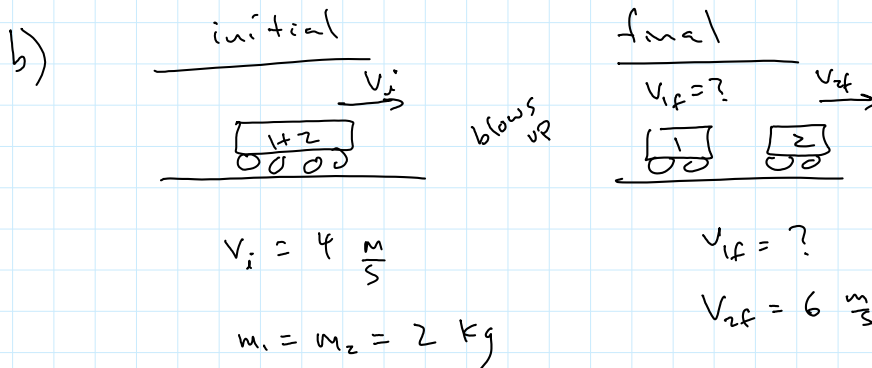 b)
initial
V_i
1+2
V_i = 4 m/s
m_1 = m_2 = 2 kg
blows
up
final
V_1f = ?
V_2f
1
2
V_1f = ?
V_2f = 6 m/s